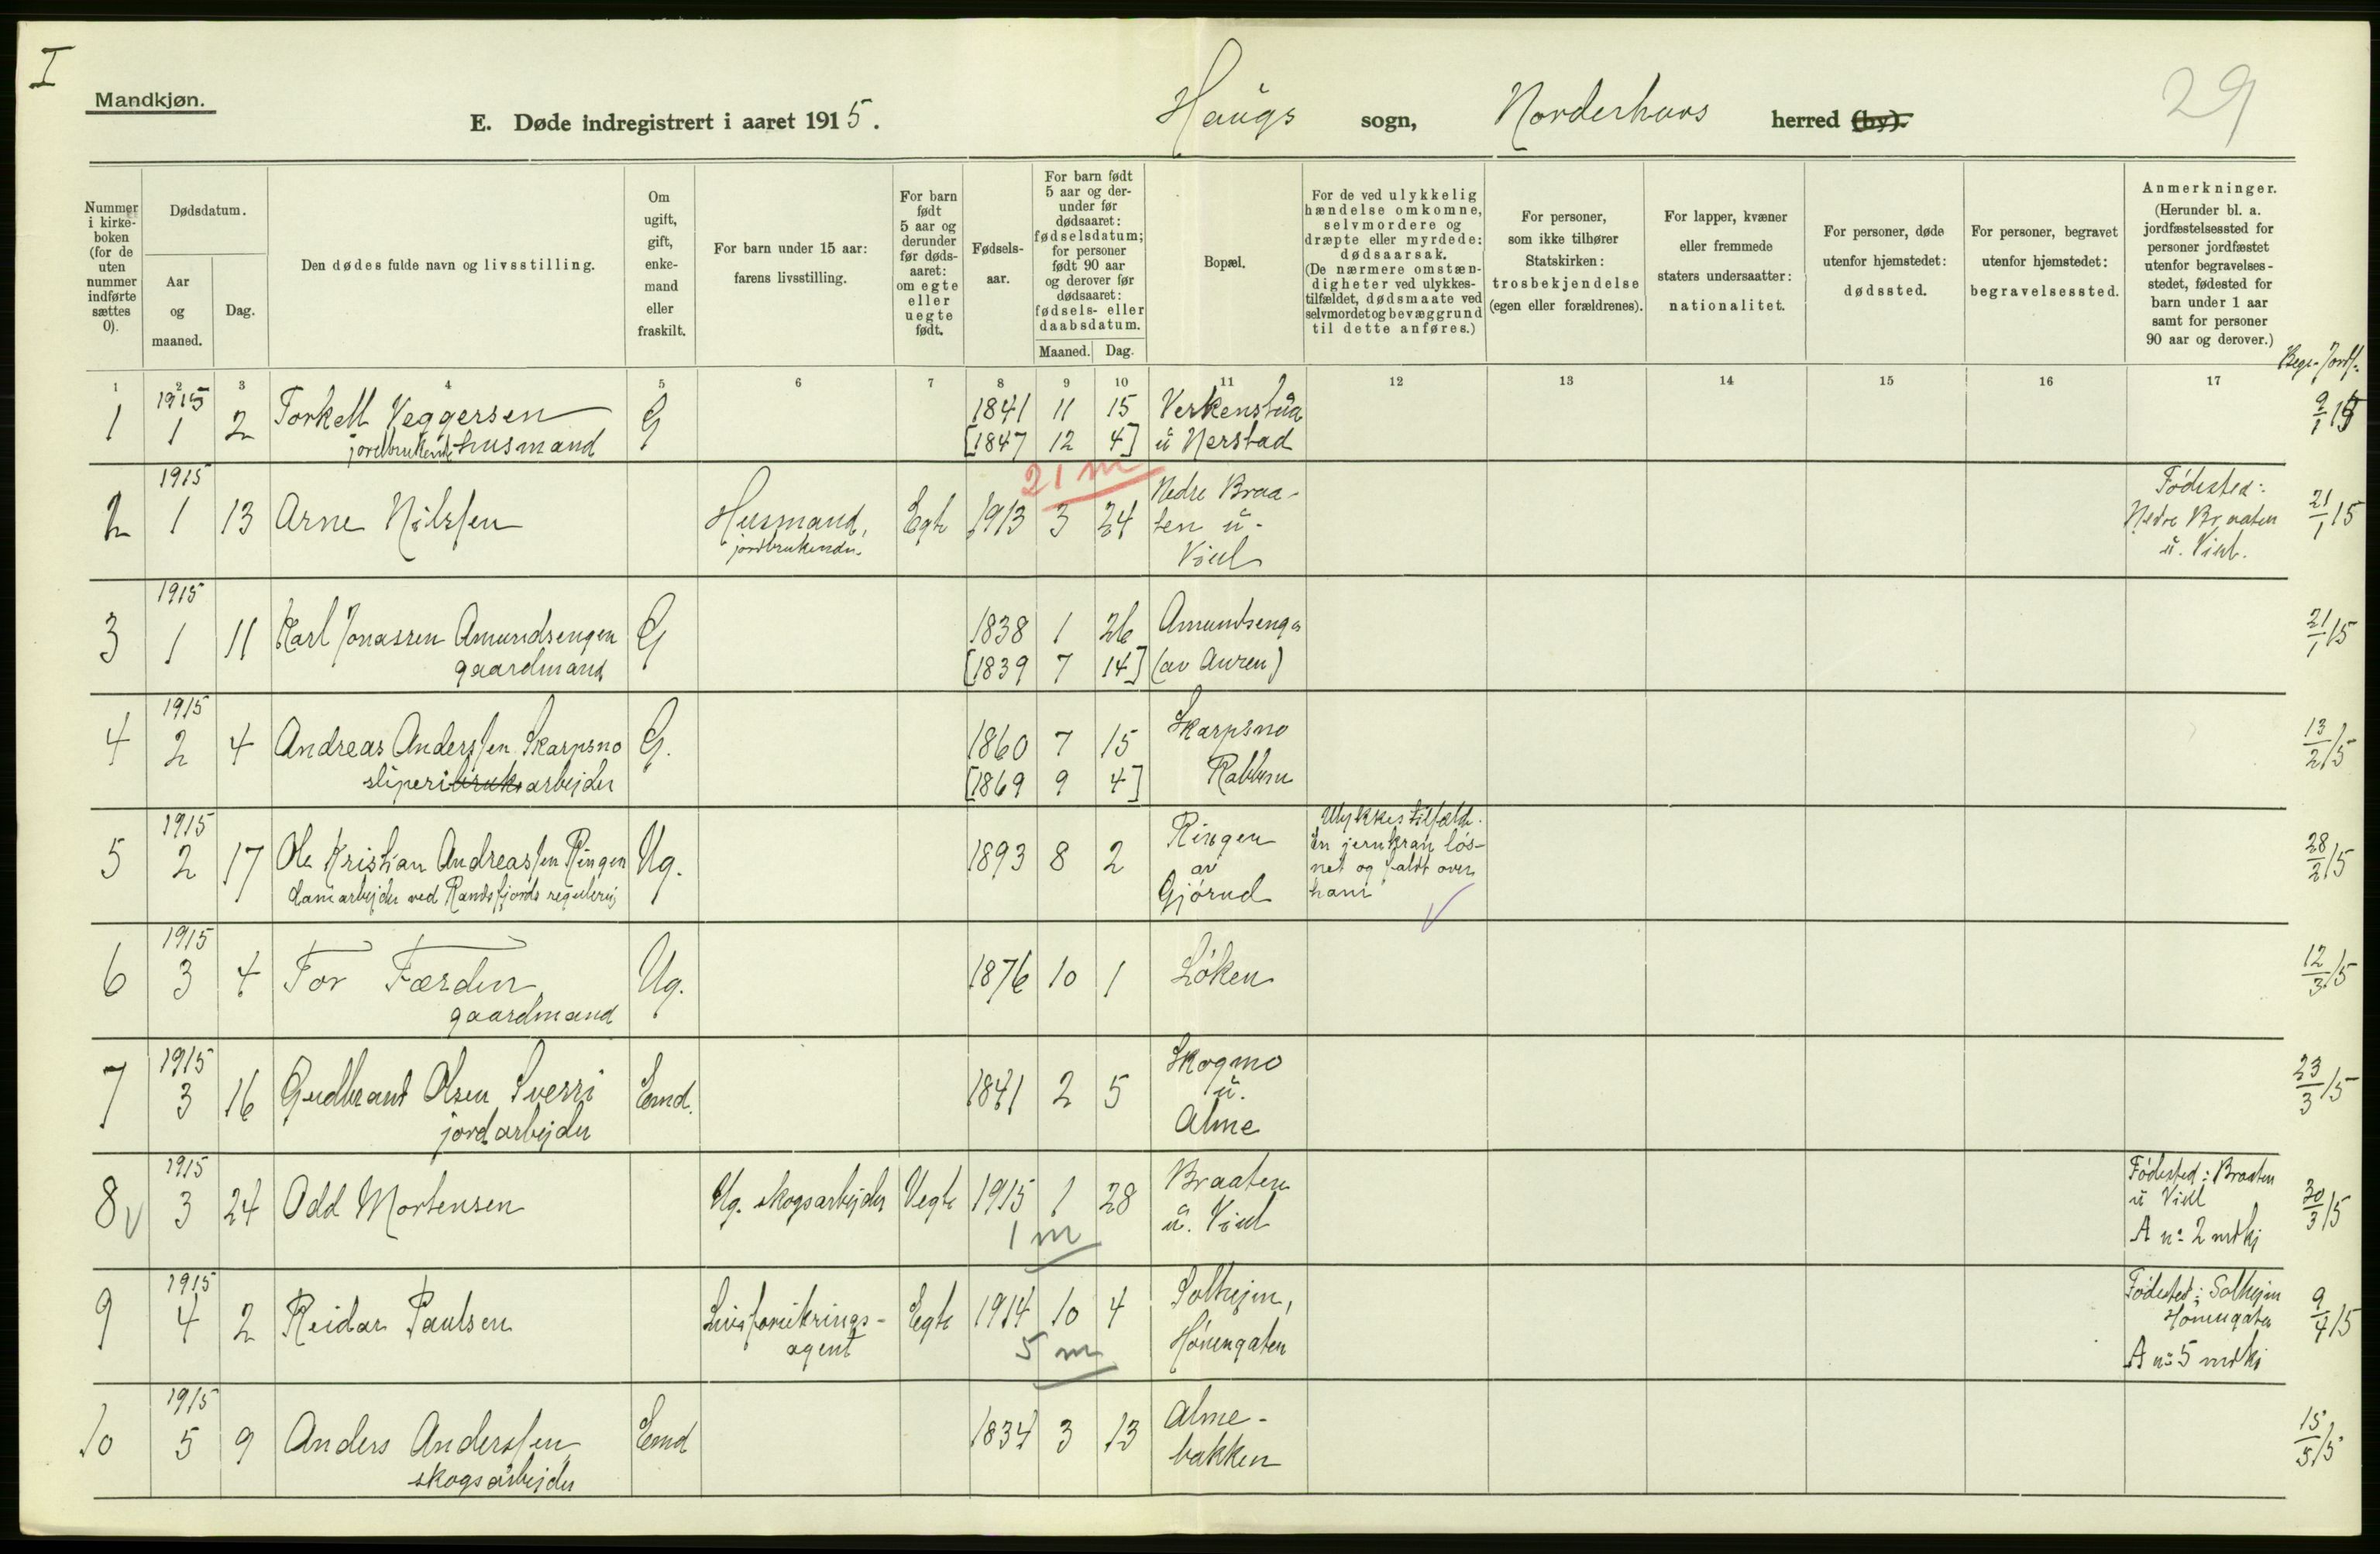 I
Mandkjøn.
E. Døde indregistrert i aaret 1915.
Haugs sogn, Norderhovs herred (by).
29
Nummer i kirke-boken (for de uten nummer indførte sættes 0).
Dødsdatum.
Aar og maaned.
Dag.
Den dødes fulde navn og livsstilling.
Om ugift, gift, enke-mand eller fraskilt.
For barn under 15 aar: farens livsstilling.
For barn født 5 aar og derunder før døds-aaret: om egte eller uegte født.
Fødsels-aar.
For barn født 5 aar og der-under før dødsaaret: fødselsdatum; for personer født 90 aar og derover før dødsaaret: fødsels- eller daabsdatum.
Maaned. Dag.
Bopæl.
For de ved ulykkelig hændelse omkomne, selvmordere og dræpte eller myrdede: dødsaarsak. (De nærmere omstæn-digheter ved ulykkes-tilfældet, dødsmaate ved selvmordet og bevæggrund til dette anføres.)
For personer, som ikke tilhører Statskirken: trosbekjendelse (egen eller forældrenes).
For lapper, kvæner eller fremmede staters undersaatter: nationalitet.
For personer, døde utenfor hjemstedet: dødssted.
For personer, begravet utenfor hjemstedet: begravelsessted.
Anmerkninger. (Herunder bl. a. jordfæstelsessted for personer jordfæstet utenfor begravelses-stedet, fødested for barn under 1 aar samt for personer 90 aar og derover.)
Begr. Jordf.
1 2 3 4 5 6 7 8 9 10 11 12 13 14 15 16 17
1915
1 1 2 Torkell Veggersen G 1841 11 15 Verkenstua 9/1 15
jordbrukende husmand [1847 12 4] u Nerstad
1915 21 m
2 1 13 Arne Nilssen Husmand, Egte 1913 3 24 Nedre Braa- Fødested: 21/1 15
jordbrukende. ten u. Nedre Braaten
Viul u. Viul.
1915
3 1 11 Karl Jonassen Amundsengen G 1838 1 26 Amundsengen 21/1 15
gaardmand [1839 7 14] (av Auren)
1915
4 2 4 Andreas Anderssen Skarpsno G. 1860 7 15 Skarpsno 13/2 15
sliperibruksarbejder [1869 9 4]
1915
5 2 17 Ole Kristian Andreassen Ringen Ug. 1893 8 2 Ringen Ulykkestilfælde. 28/2 15
damarbejder ved Randsfjords regulering av En jernkran løs-
Gjørud net og faldt over
ham
1915
6 3 4 Tor Færden Ug. 1876 10 1 Løken 12/3 15
gaardmand
1915
7 3 16 Gudbrand Olsen Sverri Emd. 1841 2 5 Skogmo 23/3 15
jordarbejder u.
Alme
1915
8 v 3 24 Odd Mortensen Ug. skogsarbejder Uegte 1915 1 28 Braaten Fødested: Braaten 30/3 15
1 m u. Viul u Viul
A no 2 mdkj
1915
9 4 2 Reidar Paulsen Livsforsikrings- Egte 1914 10 4 Solhejm, Fødested: Solhejm 9/4 15
agent 5 m Hønengaten Hønengaten
A no 5 mdkj
1915
10 5 9 Anders Anderssen Emd 1834 3 13 Alme- 15/5 15
skogsarbejder bakken